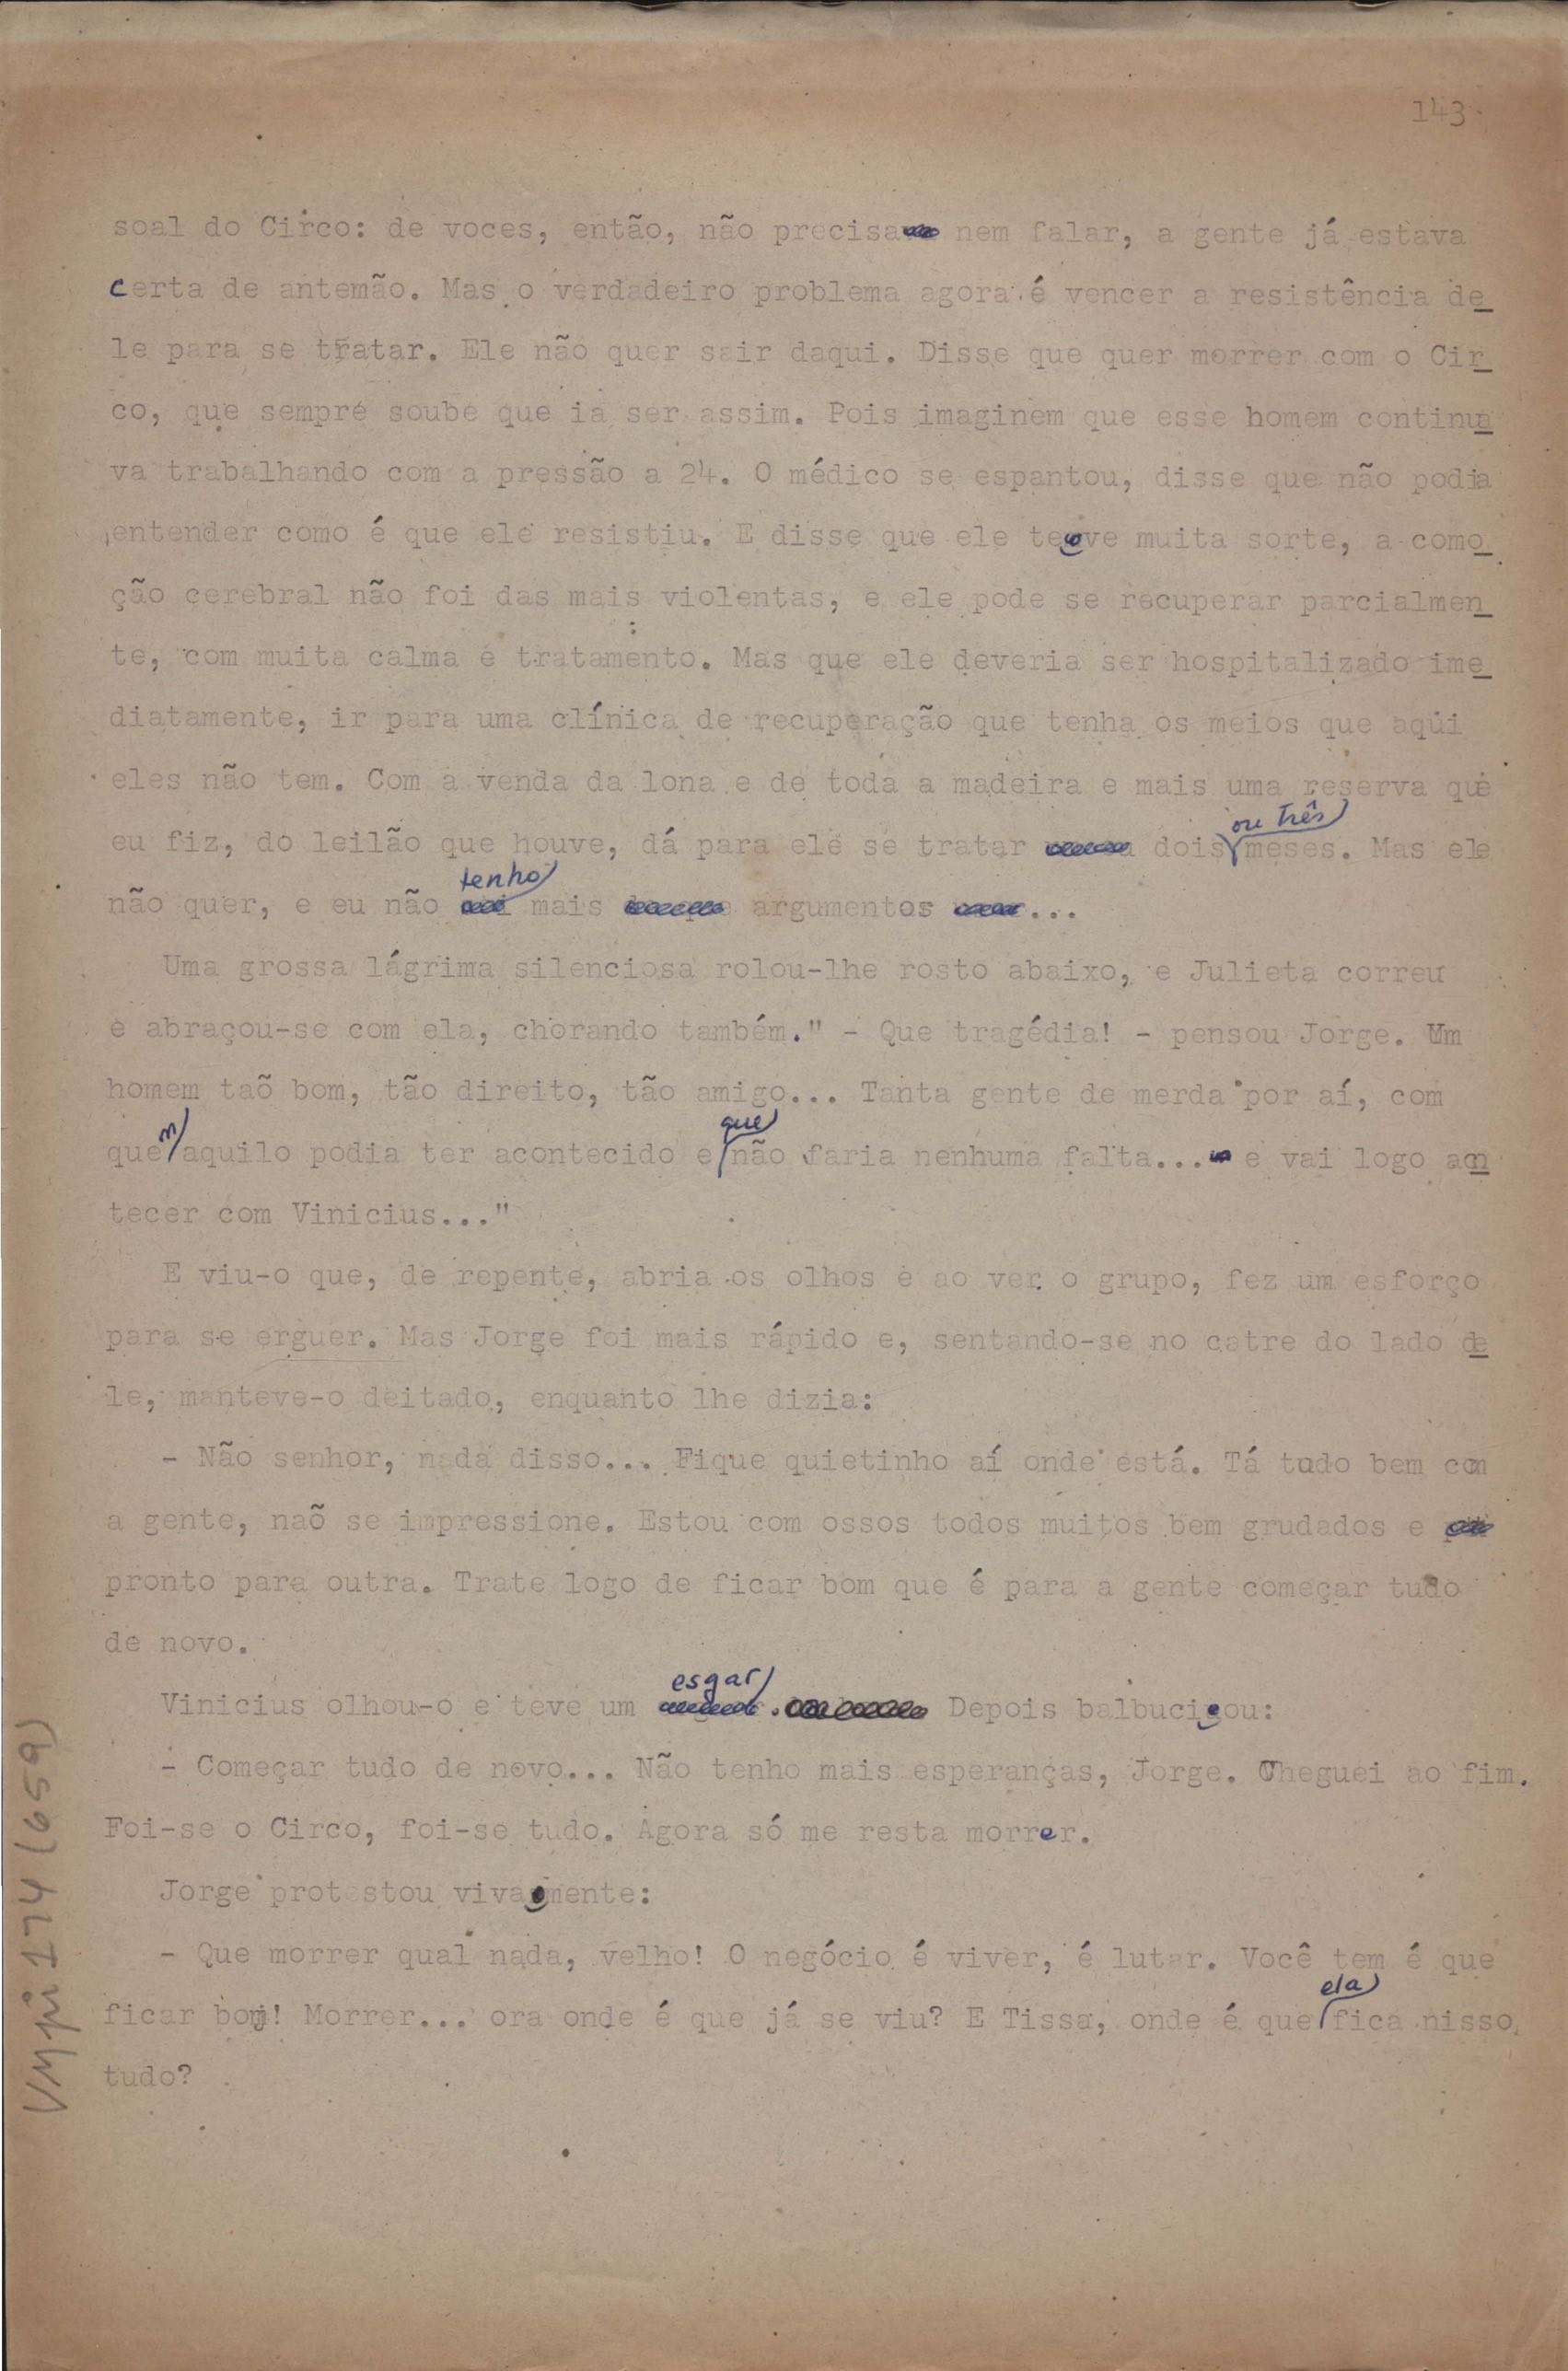 143.
soal do Circo: de voces, então, não precisa nem falar, a gente já estava
certa de antemão. Mas o verdadeiro problema agora é vencer a resistência de
le para se tratar. Ele não quer sair daqui. Disse que quer morrer com o Cir
co, que sempre soube que ia ser assim. Pois imaginem que esse homem continua
va trabalhando com a pressão a 24. O médico se espantou, disse que não podia
entender como é que ele resistiu. E disse que ele teve muita sorte, a como
ção cerebral não foi das mais violentas, e ele pode se recuperar parcialmen
te, com muita calma e tratamento. Mas que ele deveria ser hospitalizado ime
diatamente, ir para uma clínica de recuperação que tenha os meios que aqui
eles não tem. Com a venda da lona e de toda a madeira e mais uma reserva que
ou três
eu fiz, do leilão que houve, dá para ele se tratar dois meses. Mas ele
tenho
não quer, e eu não mais argumentos ...
Uma grossa lágrima silenciosa rolou-lhe rosto abaixo, e Julieta correu
e abraçou-se com ela, chorando também." - Que tragédia! - pensou Jorge. Um
homem taõ bom, tão direito, tão amigo... Tanta gente de merda por aí, com
que
quem aquilo podia ter acontecido e não faria nenhuma falta... e vai logo acon
tecer com Vinicius..."
E viu-o que, de repente, abria os olhos e ao ver o grupo, fez um esforço
para se erguer. Mas Jorge foi mais rápido e, sentando-se no catre do lado de
le, manteve-o deitado, enquanto lhe dizia:
- Não senhor, nada disso... Fique quietinho aí onde está. Tá tudo bem com
a gente, naõ se impressione. Estou com ossos todos muitos bem grudados e
pronto para outra. Trate logo de ficar bom que é para a gente começar tudo
de novo.
esgar
Vinicius olhou-o e teve um . Depois balbuciou:
- Começar tudo de novo... Não tenho mais esperanças, Jorge. Cheguei ao fim.
Foi-se o Circo, foi-se tudo. Agora só me resta morrer.
Jorge protestou vivamente:
- Que morrer qual nada, velho! O negócio é viver, é lutar. Você tem é que
ela
ficar bom! Morrer... ora onde é que já se viu? E Tissa, onde é que fica nisso
tudo?
VMpi 174 (659)